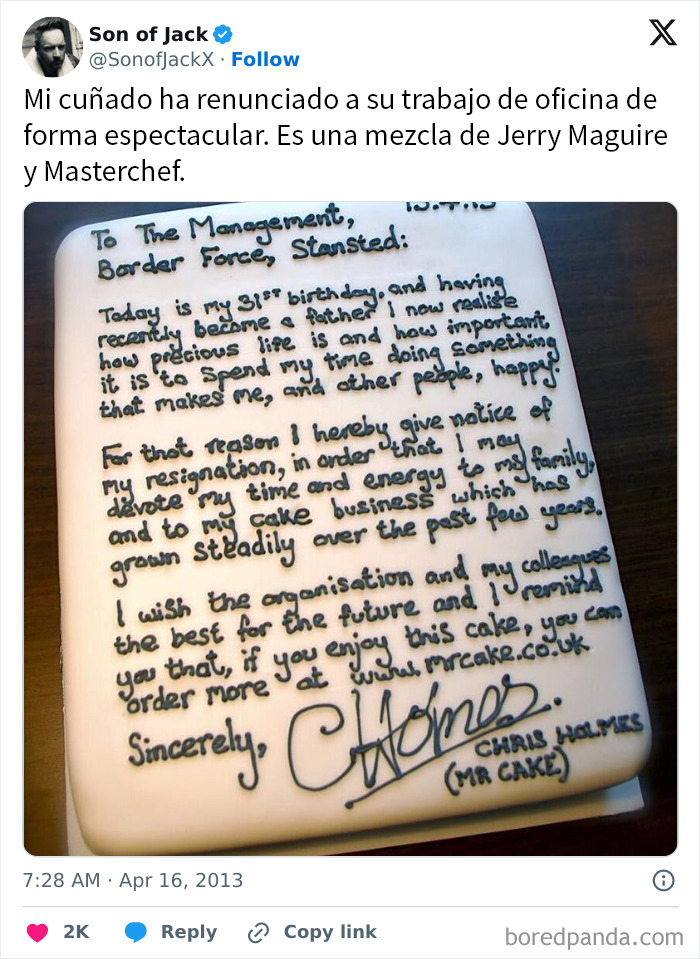 Son of Jack
@SonofJackX · Follow
X
Mi cuñado ha renunciado a su trabajo de oficina de
forma espectacular. Es una mezcla de Jerry Maguire
y Masterchef.
To The Management,
Border Force, Stansted:
Today is my 31st birthday, and having
recently become a father I now realise
how precious life is and how important
it is to spend my time doing something
that makes me, and other people, happy.
For that reason I hereby give notice of
my resignation, in order that I may
devote my time and energy to my family,
and to my cake business which has
grown steadily over the past few years.
I wish the organisation and my colleagues
the best for the future and I remind
you that, if you enjoy this cake, you can
order more at www.mrcake.co.uk
Sincerely,
CHolmes.
CHRIS HOLMES
(MR CAKE)
7:28 AM · Apr 16, 2013
2K Reply Copy link
boredpanda.com